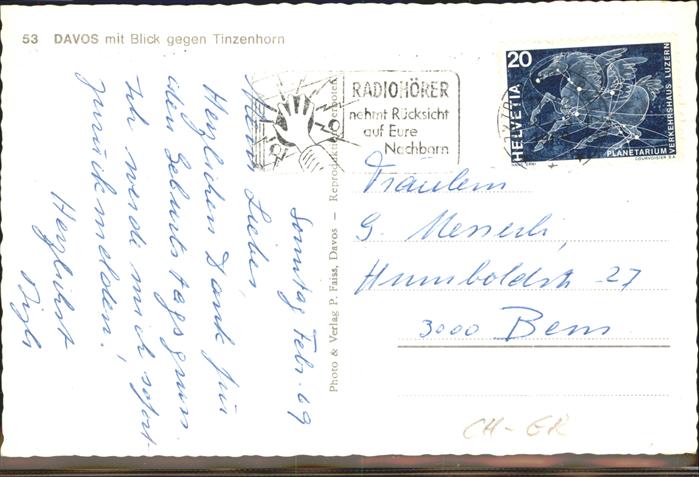 53 DAVOS mit Blick gegen Tinzenhorn
Sonntag Febr. 69
Mein Lieber
Herzlichen Dank für
den Geburtstagsgruss.
Ich werde mich sofort
zurückmelden!
Herzlichst
Photo & Verlag P. Faiss, Davos – Reproduktion verboten
RADIOHÖRER
nehmt Rücksicht
auf Eure
Nachbarn
20
HELVETIA
PLANETARIUM
VERKEHRSHAUS LUZERN
COURVOISIER S.A.
Fräulein
G. Messerli,
Humboldtstr. 27
3000 Bern
CH-GR